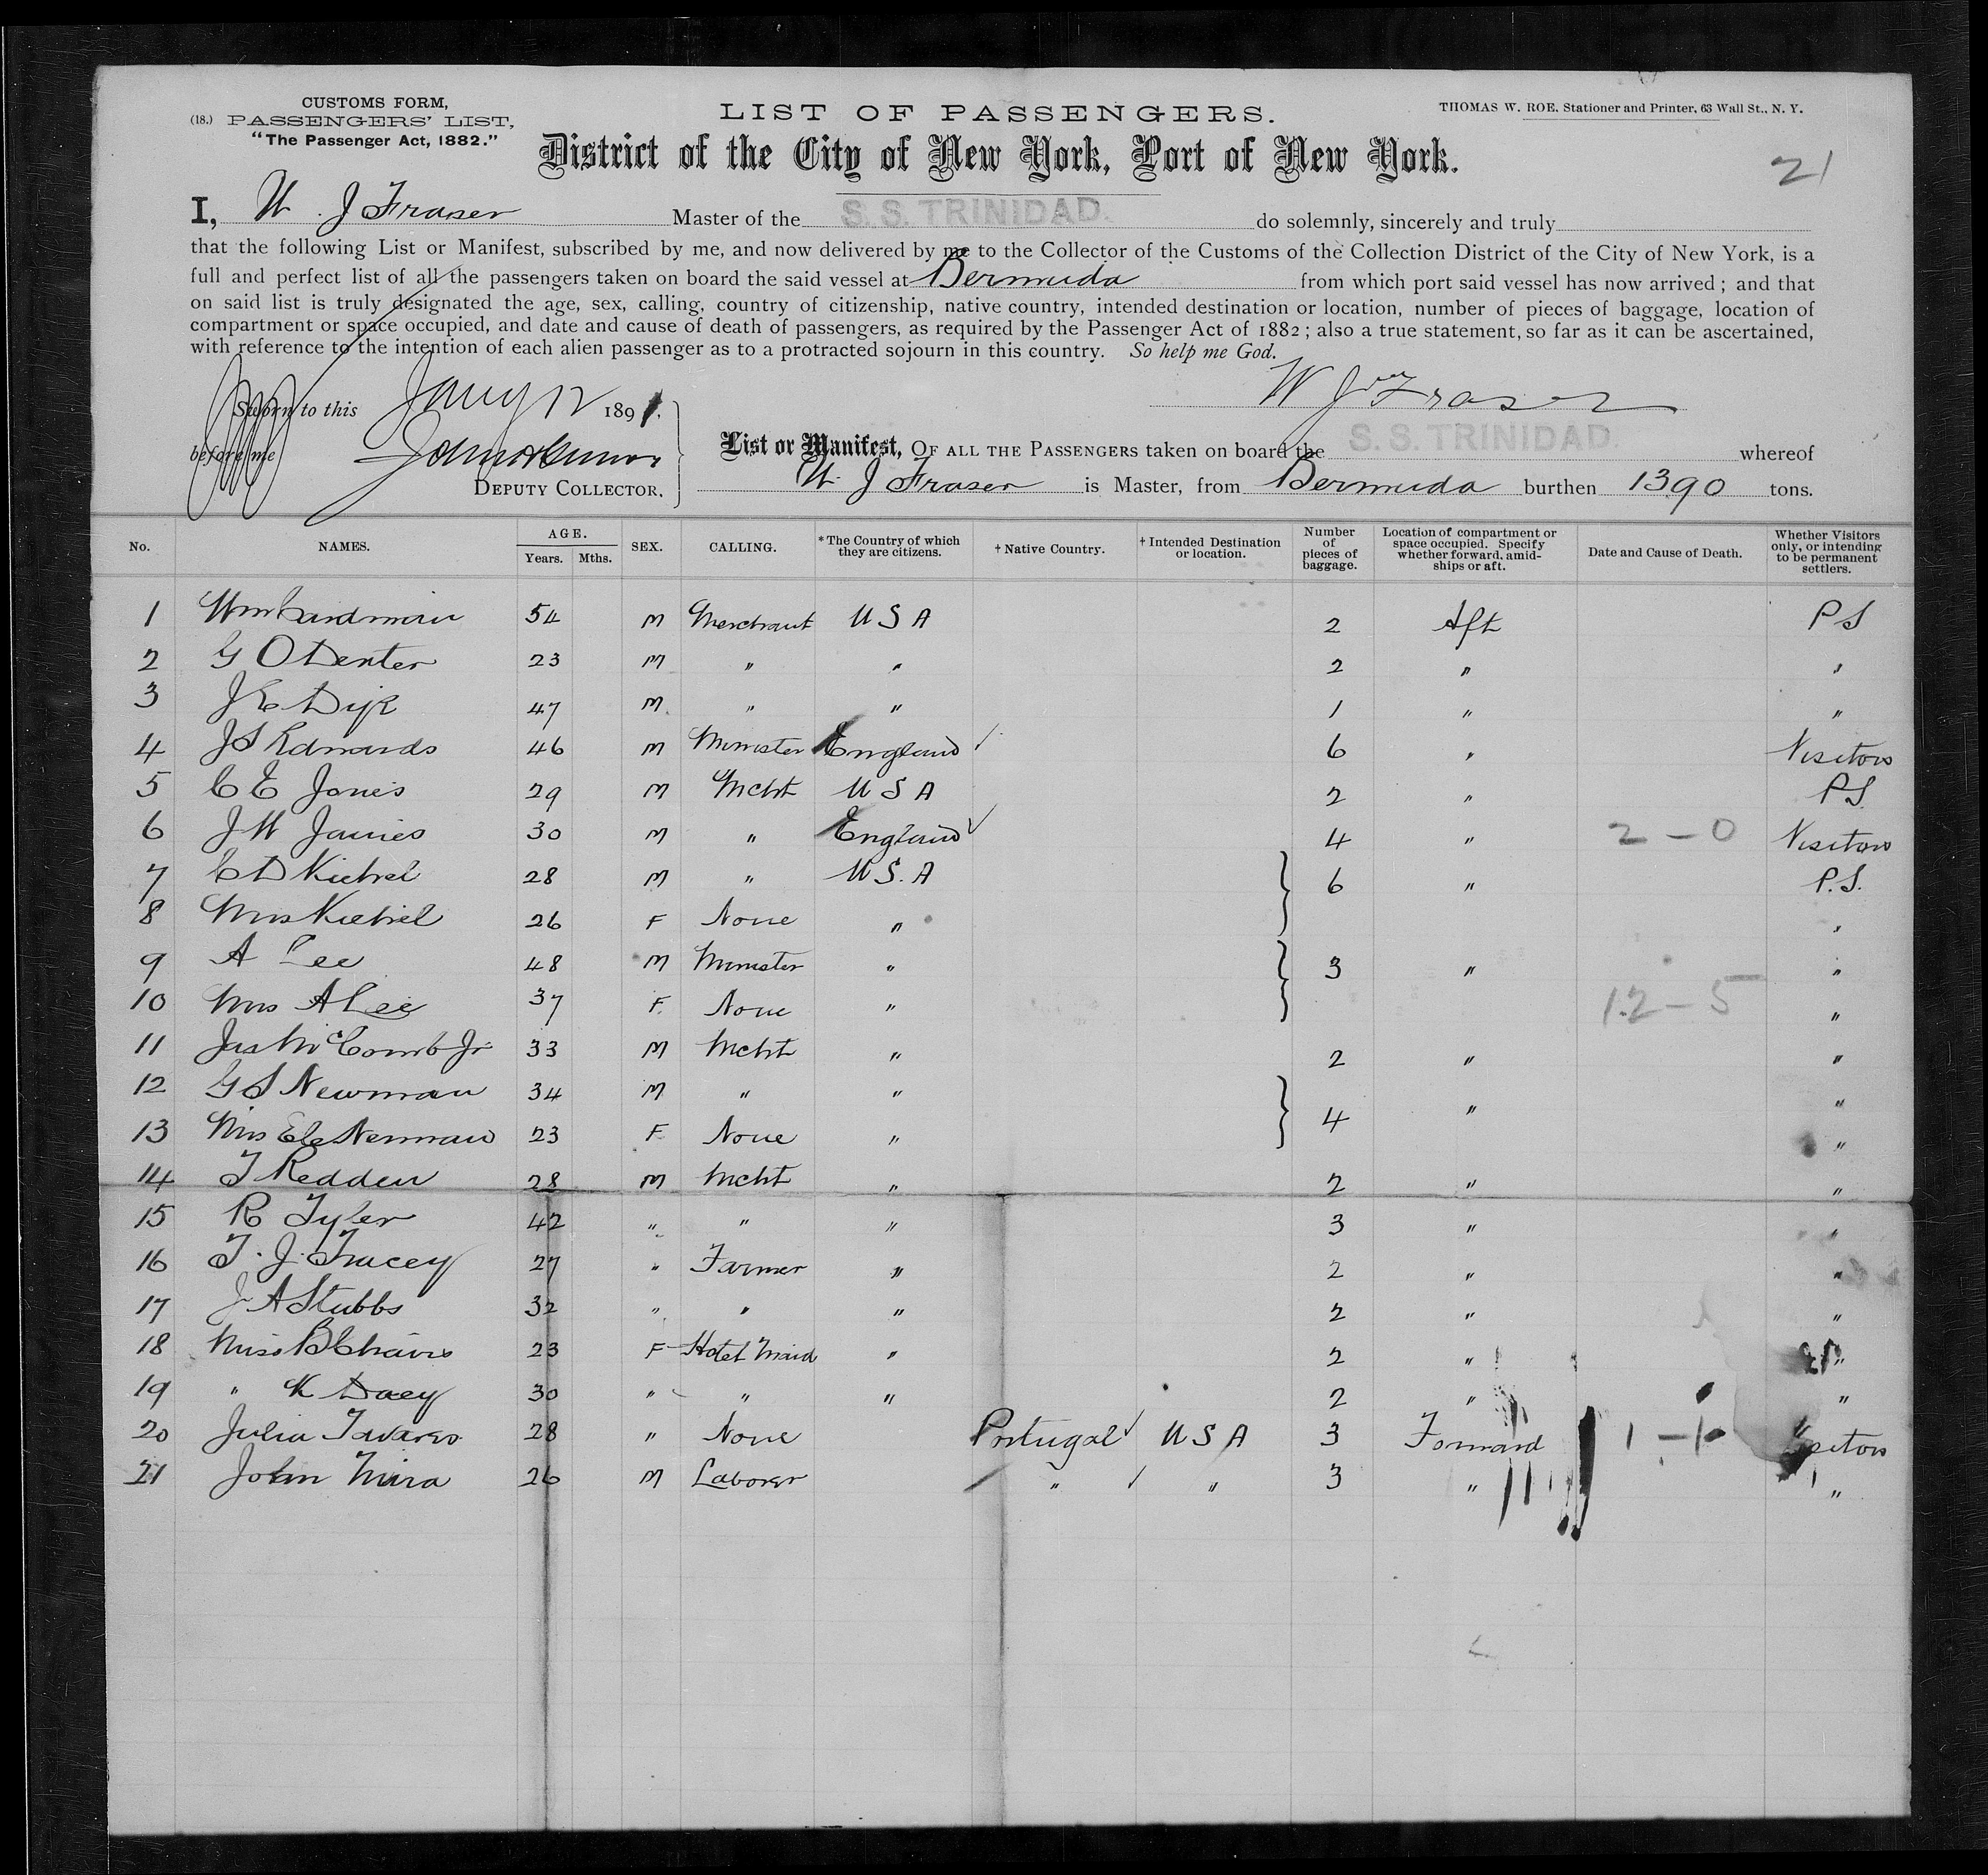 CUSTOMS FORM,
(18.) PASSENGERS' LIST,
"The Passenger Act, 1882."
LIST OF PASSENGERS.
THOMAS W. ROE. Stationer and Printer, 63 Wall St., N. Y.
District of the City of New York, Port of New York.
21
I, W. J Fraser Master of the S. S. TRINIDAD. do solemnly, sincerely and truly
that the following List or Manifest, subscribed by me, and now delivered by me to the Collector of the Customs of the Collection District of the City of New York, is a
full and perfect list of all the passengers taken on board the said vessel at Bermuda from which port said vessel has now arrived; and that
on said list is truly designated the age, sex, calling, country of citizenship, native country, intended destination or location, number of pieces of baggage, location of
compartment or space occupied, and date and cause of death of passengers, as required by the Passenger Act of 1882; also a true statement, so far as it can be ascertained,
with reference to the intention of each alien passenger as to a protracted sojourn in this country. So help me God.
Sworn to this Jany 12 1891.
W J Fraser
before me
DEPUTY COLLECTOR.
List or Manifest, OF ALL THE PASSENGERS taken on board the S. S. TRINIDAD whereof
W. J Fraser is Master, from Bermuda burthen 1390 tons.
No. NAMES. AGE. Years. Mths. SEX. CALLING. *The Country of which they are citizens. † Native Country. † Intended Destination or location. Number of pieces of baggage. Location of compartment or space occupied. Specify whether forward, amidships or aft. Date and Cause of Death. Whether Visitors only, or intending to be permanent settlers.
1 Wm 54 M Merchant U S A 2 Aft P S
2 G O 23 M " " 2 " "
3 J 47 M " " 1 " "
4 J S Edwards 46 M Minister England 6 " Visitors
5 C E Jones 29 M Mcht U S A 2 " P S
6 J W James 30 M " England 4 " 2 - 0 Visitors
7 C D 28 M " U S. A 6 " P. S.
8 Mrs 26 F None " "
9 A Lee 48 M Minister " 3 " "
10 Mrs A Lee 37 F None " 12 - 5 "
11 Jas McComb Jr 33 M Mcht " 2 " "
12 G S Newman 34 M " " 4 " "
13 Mrs Newman 23 F None " "
14 T Redden 28 M Mcht " 2 " "
15 R Tyler 42 " " " 3 " "
16 T. J. Tracey 27 " Farmer " 2 " "
17 J A Stubbs 32 " " " 2 " "
18 Miss B 23 F Hotel Maid " 2 " "
19 " K 30 " " " 2 " "
20 Julia Tavares 28 " None Portugal U S A 3 Forward 1 - 1 Visitors
21 John Mira 26 M Laborer " " 3 " "